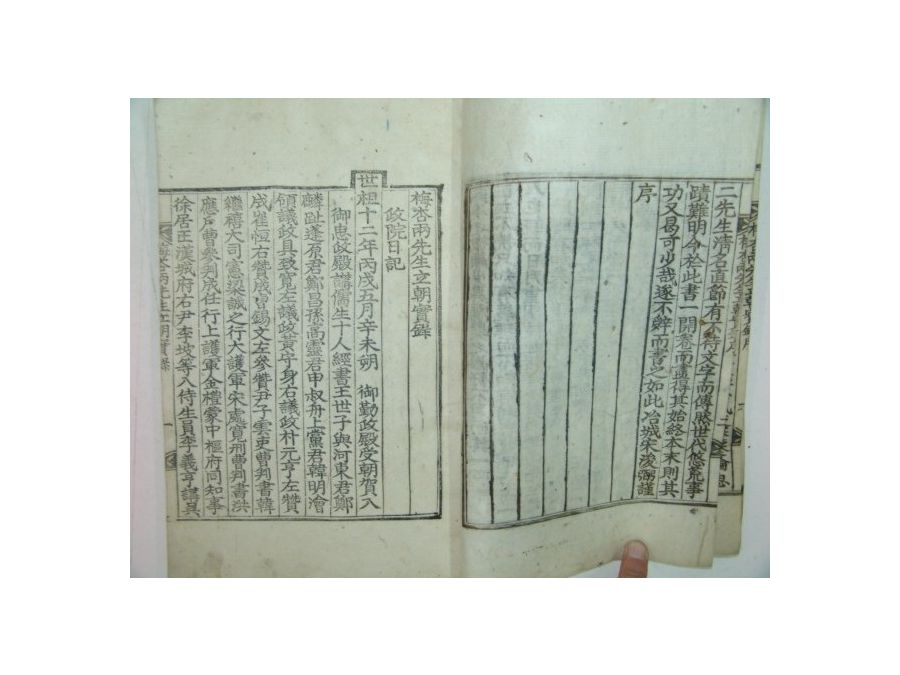 二先生淸名直節有不待文字而傳然世代悠荒事
蹟難明今於此書一開卷而盡得其始終本末則其
功又曷可少哉遂不辭而書之如此冶城宋浚弼謹
序
梅杏兩先生立朝實錄
政院日記
世祖十二年丙戌五月辛未朔 御勤政殿受朝賀入
御思政殿講儒生十人經書王世子與河東君鄭
麟趾蓬原君鄭昌孫高靈君申叔舟上黨君韓明澮
領議政具致寬左議政黃守身右議政朴元亨左贊
成崔恒右贊成曺錫文左參贊尹子雲吏曹判書韓
繼禧大司憲梁誠之行大護軍宋處寬刑曹判書洪
應戶曹參判成任行上護軍金禮蒙中樞府同知事
徐居正漢城府右尹李坡等入侍生員李義亨講具
梅杏兩先生立朝實錄
一